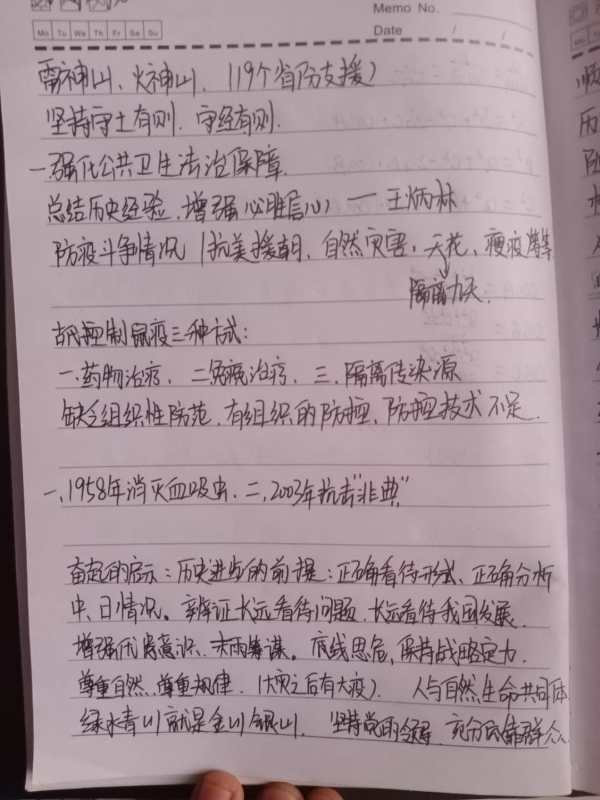 Memo No.
Date / /
Mo Tu We Th Fr Sa Su
雷神山、火神山、(19个省份支援)
坚持守土有则.守经有则.
一强化公共卫生法治保障.
总结历史经验.增强必胜信心 — 王炳林
防疫斗争情况 (抗美援朝.自然灾害.天花、瘟疫等
隔离九天.
控制鼠疫三种方式:
一.药物治疗. 二免疫治疗. 三.隔离传染源
缺乏组织性防范.有组织的防控.防控技术不足.
一.1958年消灭血吸虫.二.2003年抗击"非典"
的启示:历史进步的前提:正确看待形式、正确分析
中、日情况。辨证长远看待问题.长远看待我国发展.
增强忧患意识.未雨筹谋。底线思危,保持战略定力.
尊重自然.尊重规律.(大灾之后有大疫). 人与自然生命共同体
绿水青山就是金山银山. 坚持党的领导.充分依靠群众